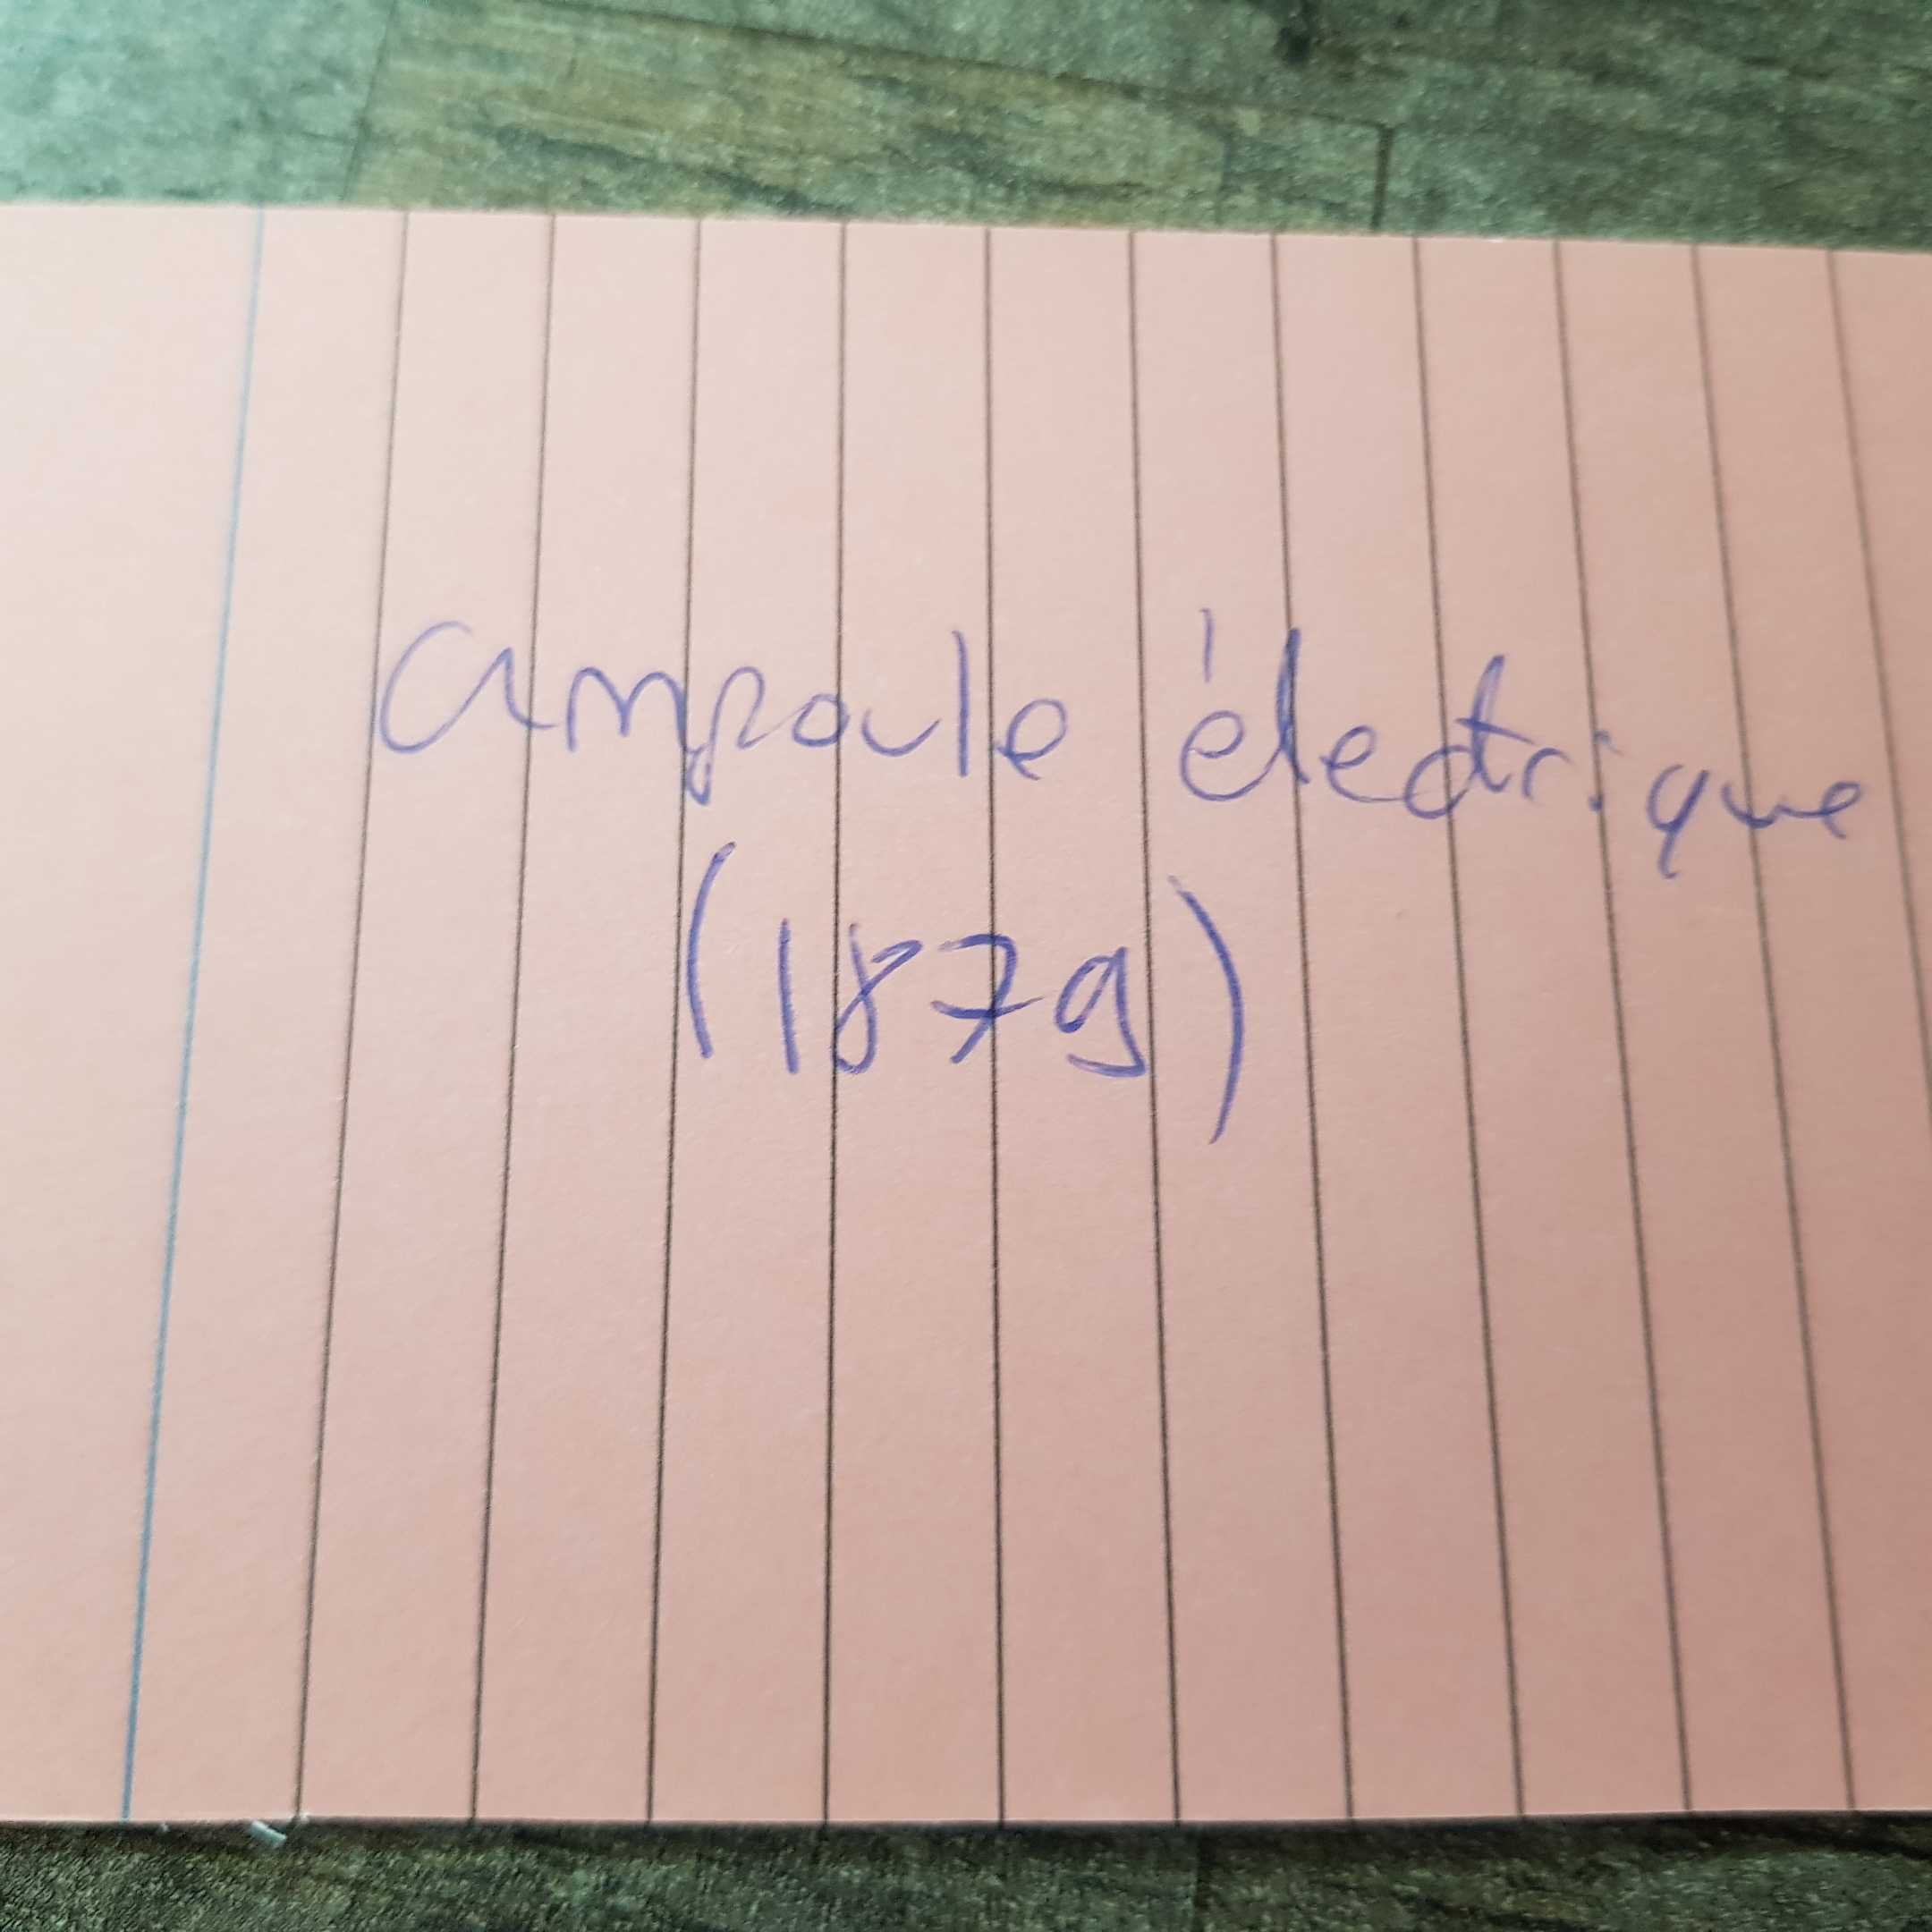 ampoule électrique
(1879)